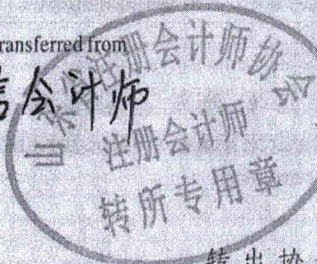 ransferred from
会计师
注册会计师协会
注册会计师
转所专用章
转出协